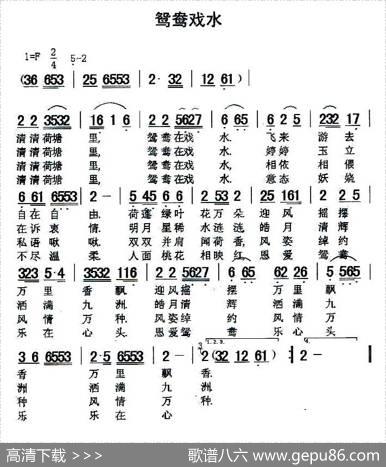 鸳鸯戏水
1=F 2/4 5-2
(36 653 | 25 6553 | 2· 32 | 12 61) |
2 2 3532 | 16 1 6 | 2 2 5627 | 6 65 | 6 65 | 232 17 |
清清荷塘 里, 鸳鸯在戏 水. 飞来 游去
清清荷塘 里, 鸳鸯在戏 水. 婷婷 玉立
清清荷塘 里, 鸳鸯在戏 水. 相依 相偎
清清荷塘 里, 鸳鸯在戏 水. 意态 妖娆
6 61 6553 | 2 - | 5 45 6 6 | 2 53 2 | 25 161 | 2 25 |
自在自 由. 荷蓬绿叶 花万朵 迎风 摇摆
在诉衷 情. 明月星稀 水涟涟 皓月 清辉
私语啾 啾. 双双并肩 闻荷香 风姿 绰约
不尽温 柔. 人面桃花 相映红 恩爱 鸳鸯
323 5·4 | 3532 116 | 2 2 5627 | 6 65 | 62 26 | 5 565 |
万里 香飘 迎风摇 摆 万里 飘
洒满 九洲 皓月清 辉 洒满 九
风情 万种 风姿绰 约 风情 万
乐在 心头 恩爱鸳 鸯 乐在 心
3 6 6553 | 2·5 6553 | 2 - | 2 (32 12 61) :| 2 - ‖
香 万里飘 香.
洲 洒满九 洲
种 风情万 种.
头 乐在心
高清下载 >>> 歌谱八六 www.gepu86.com